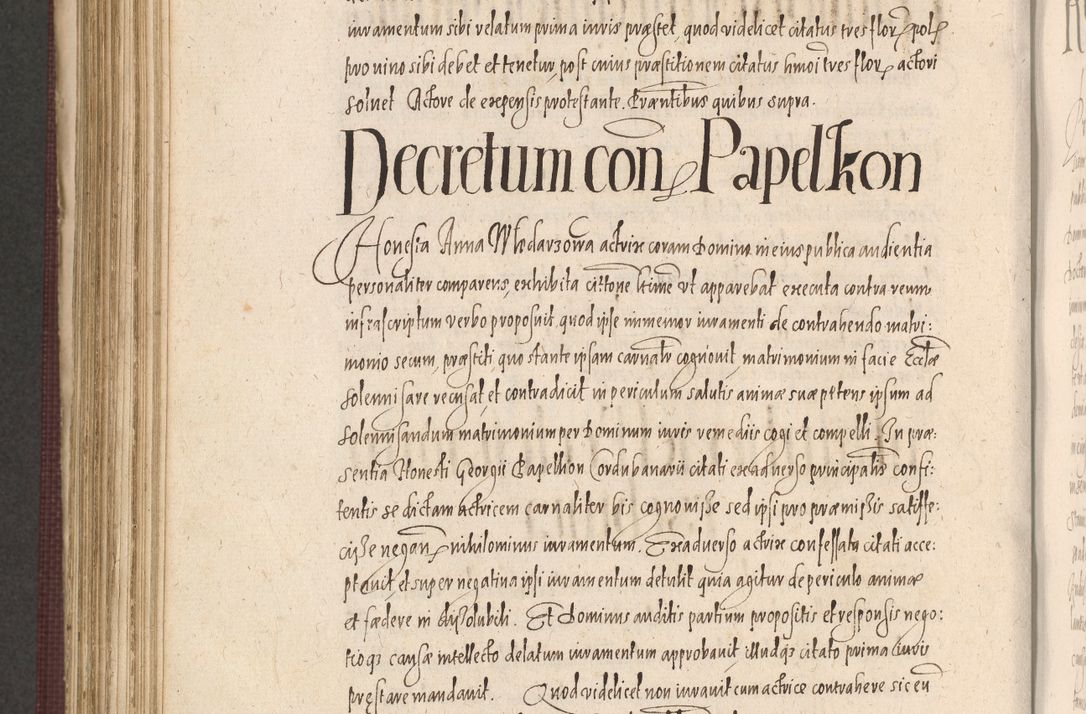 iuramentum sibi relatum prima iuris præstet, quod videlicet citatus tres flor polł
pro vino sibi debet et tenetur, post cuius præstitionem citatus hmoi tres flor actori
soluet Actore de expensis protestante. Præntibus quibus supra.
Decretum con Papelkon
Honesta Anna Włodarzowa actrix coram Domino in eius publica audientia
personaliter comparens, exhibita citõne ltime vt apparebat executa contra reum
infrascriptum verbo proposuit, quod ipse immemor iuramenti de contrahendo matri:
monio secum, præstiti, quo stante ipsam carnatr cognouit, matrimonium in facie Ecclæ
solennisare recusat, et contradicit in periculum salutis animæ suæ petens ipsum ad
solennisandum matrimonium per Dominum iuris remediis cogi et compelli. In præ:
sentia Honesti Georgii Papelkon Cordubanarii citati ex aduerso principalis confi:
tentis se dictam actricem carnaliter bis cognouisse sed ipsi pro præmissis satisfe:
cisse negan nihilominus iuramentum. Ex aduerso actrix confessata citati acce:
ptauit, et super negatiua ipsi iuramentum detulit quia agitur de periculo animæ
et fædere in dissolubili. Et Dominus auditis partium propositis et responsis nego:
tioqз causæ intellecto delatum iuramentum approbauit illudqз citato prima iuris
prestare mandauit. Quod videlicet non iurauit cum actrice contrahere sic eũ